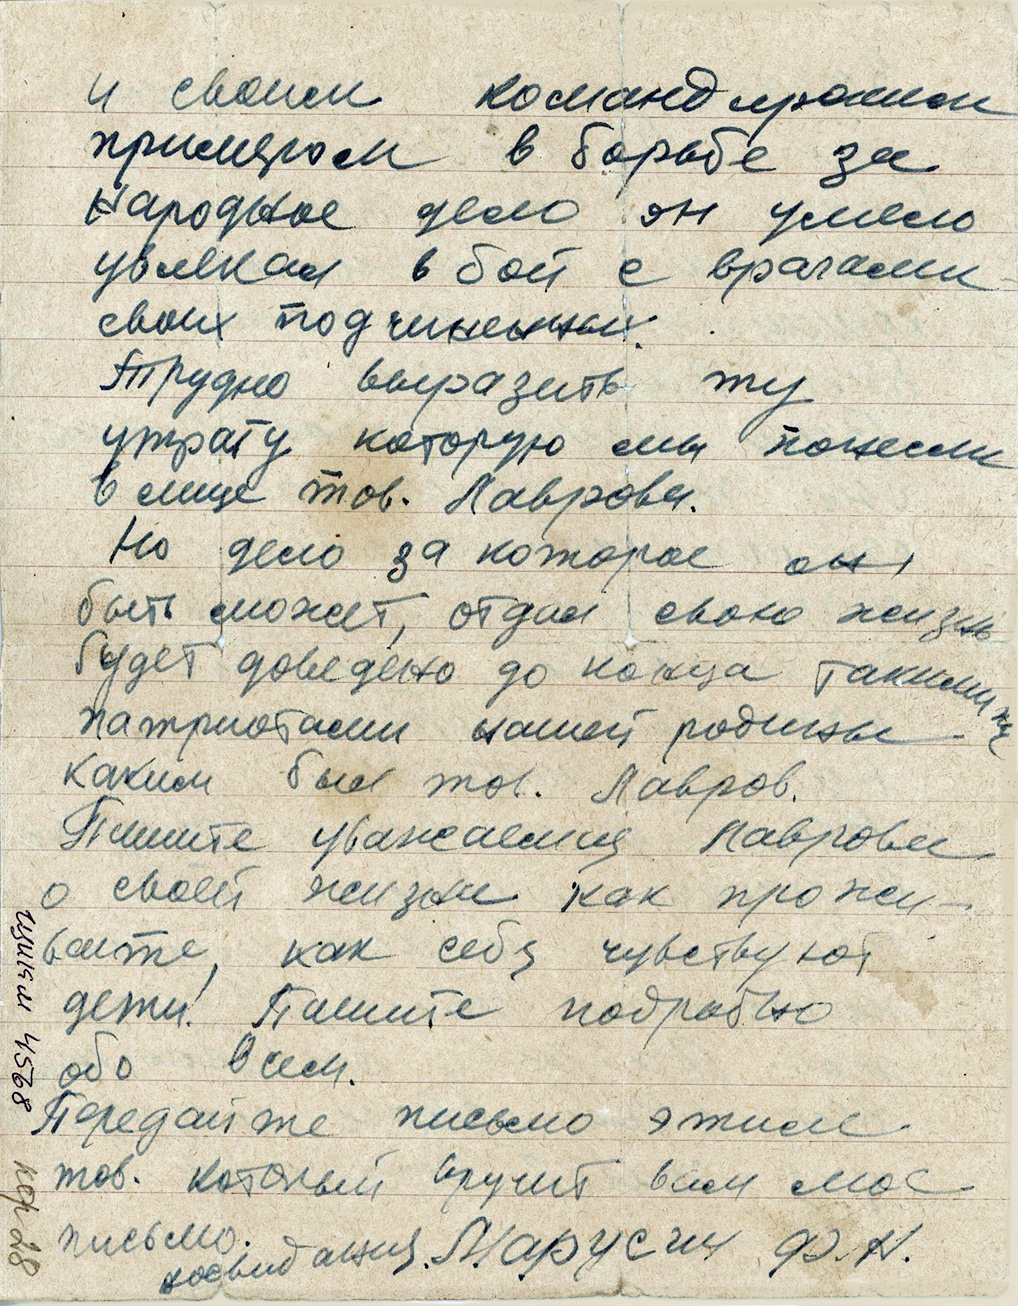 и своим командирским
примером в борьбе за
народное дело он умело
увлекал в бой с врагами
своих подчиненных.
Трудно выразить ту
утрату которую мы понесли
в лице тов. Лаврова.
Но дело за которое он,
быть может, отдал свою жизнь
будет доведено до конца такими же
патриотами нашей родины
каким был тов. Лавров.
Пишите уважаемая Лаврова
о своей жизни как прожи-
ваите, как себя чувствуют
дети. Пишите подробно
обо всем.
Передайте письмо этим
тов. который вручит вам мое
письмо.
досвидания. Марусич Ф.Н.
4568